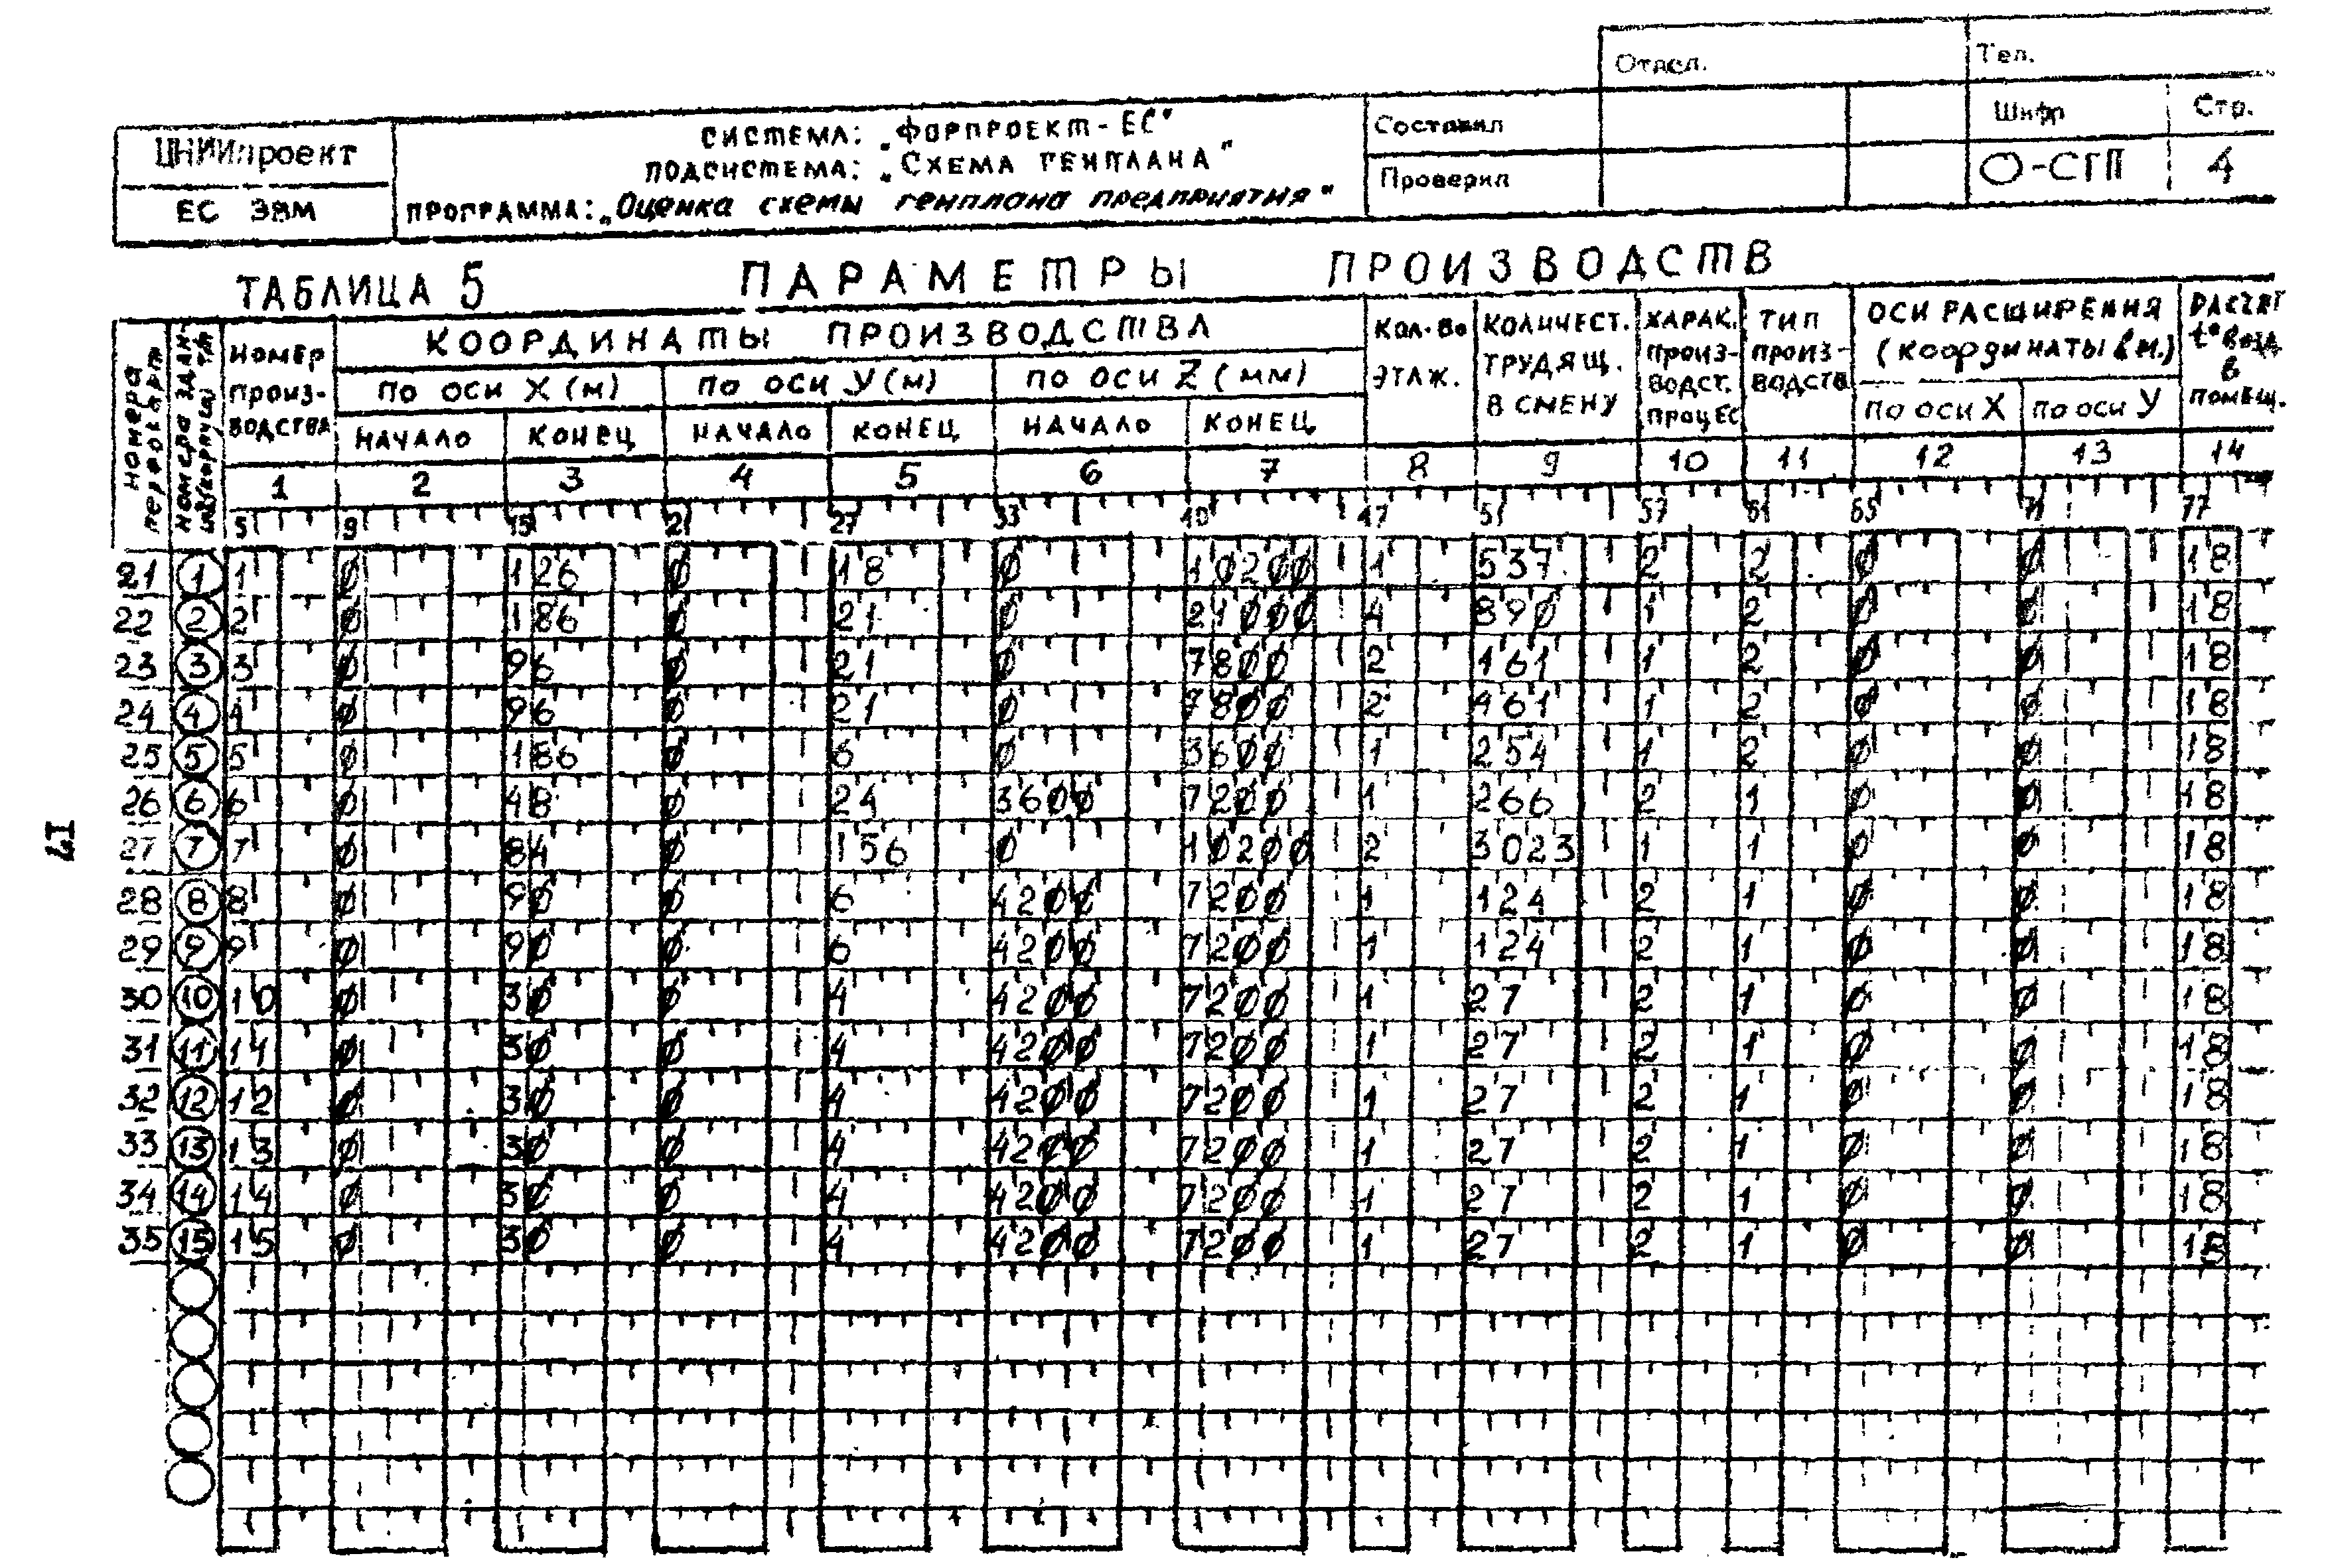 Отдел. Тел.
ЦНИИпроект СИСТЕМА: „ФОРПРОЕКТ-ЕС" Составил Шифр Стр.
ПОДСИСТЕМА: „СХЕМА ГЕНПЛАНА" Проверил О-СГП 4
ЕС ЭВМ ПРОГРАММА: „Оценка схемы генплана предприятия"
ТАБЛИЦА 5 ПАРАМЕТРЫ ПРОИЗВОДСТВ
Номера перфокарт
Номера зданий (корпуса)
Номер производства
КООРДИНАТЫ ПРОИЗВОДСТВА
ПО ОСИ X (м) ПО ОСИ У (м) ПО ОСИ Z (мм)
НАЧАЛО КОНЕЦ НАЧАЛО КОНЕЦ НАЧАЛО КОНЕЦ
КОЛ-ВО ЭТАЖ.
КОЛИЧЕСТ. ТРУДЯЩ. В СМЕНУ
ХАРАК. ПРОИЗ-ВОДСТ. ПРОЦЕС
ТИП ПРОИЗ-ВОДСТВ
ОСИ РАСШИРЕНИЯ (КООРДИНАТЫ В М.)
ПО ОСИ X ПО ОСИ У
РАСЧЕТ t° ВОЗД. В ПОМЕЩ.
1 2 3 4 5 6 7 8 9 10 11 12 13 14
5 9 15 21 27 33 40 47 51 57 61 65 71 77
21 1 1 Ø 126 Ø 18 Ø 1Ø2ØØ 1 537 2 2 Ø Ø 18
22 2 2 Ø 186 Ø 21 Ø 21ØØØ 4 89Ø 1 2 Ø Ø 18
23 3 3 Ø 96 Ø 21 Ø 78ØØ 2 161 1 2 Ø Ø 18
24 4 4 Ø 96 Ø 21 Ø 78ØØ 2 461 1 2 Ø Ø 18
25 5 5 Ø 186 Ø 6 Ø 36ØØ 1 254 1 2 Ø Ø 18
26 6 6 Ø 48 Ø 24 36ØØ 72ØØ 1 266 2 1 Ø Ø 18
27 7 7 Ø 84 Ø 156 Ø 1Ø2ØØ 2 3023 1 1 Ø Ø 18
28 8 8 Ø 9Ø Ø 6 42ØØ 72ØØ 1 124 2 1 Ø Ø 18
29 9 9 Ø 9Ø Ø 6 42ØØ 72ØØ 1 124 2 1 Ø Ø 18
30 10 10 Ø 3Ø Ø 4 42ØØ 72ØØ 1 27 2 1 Ø Ø 18
31 11 11 Ø 3Ø Ø 4 42ØØ 72ØØ 1 27 2 1 Ø Ø 18
32 12 12 Ø 3Ø Ø 4 42ØØ 72ØØ 1 27 2 1 Ø Ø 18
33 13 13 Ø 3Ø Ø 4 42ØØ 72ØØ 1 27 2 1 Ø Ø 18
34 14 14 Ø 3Ø Ø 4 42ØØ 72ØØ 1 27 2 1 Ø Ø 18
35 15 15 Ø 3Ø Ø 4 42ØØ 72ØØ 1 27 2 1 Ø Ø 18